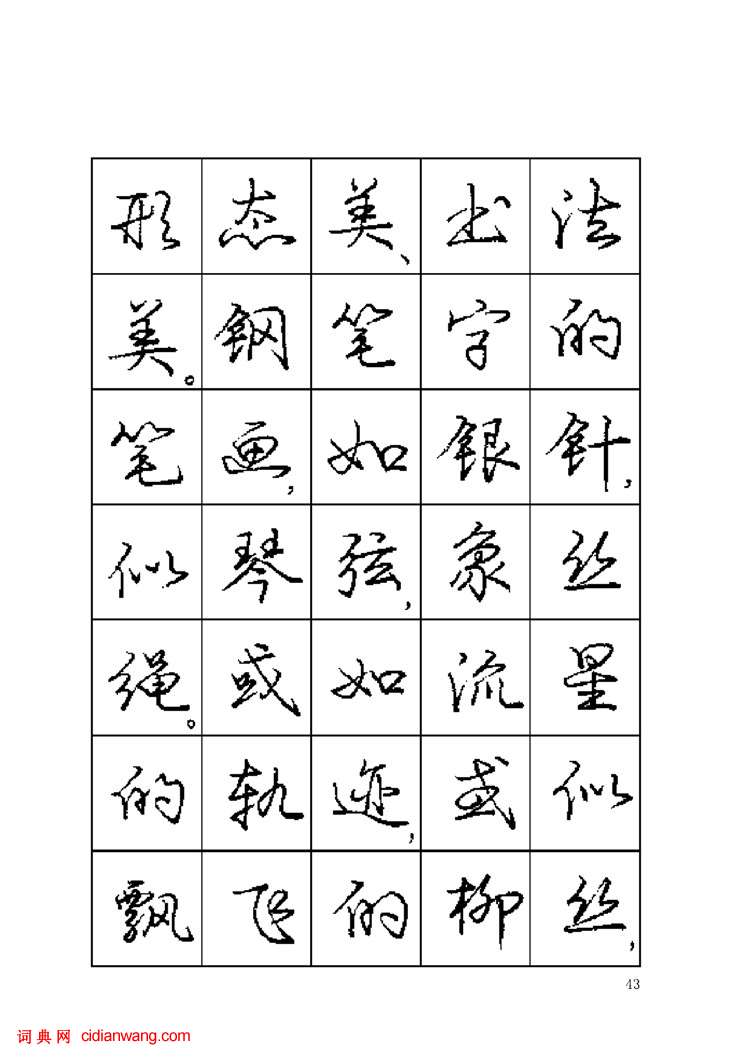 形态美、书法
美。钢笔字的
笔画，如银针，
似琴弦，象丝
绳。或如流星
的轨迹，或似
飘飞的柳丝，
43
词典网 cidianwang.com